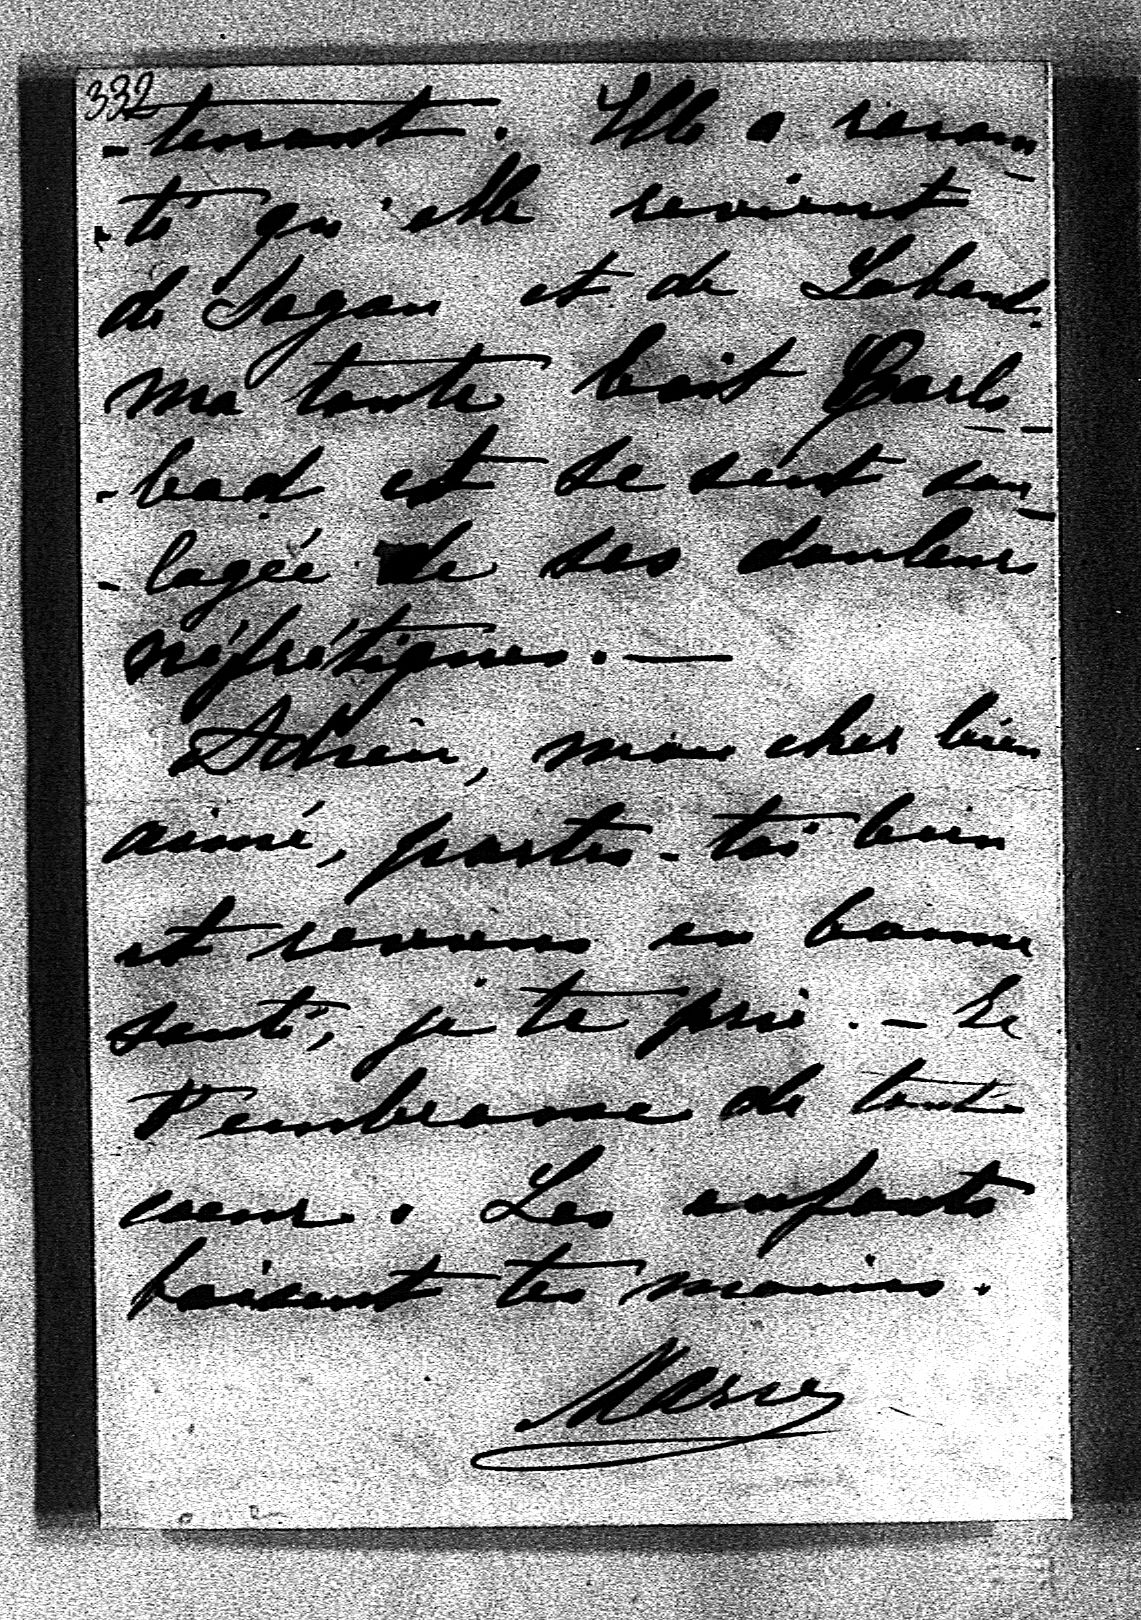 332
-tenant. Elle a racon-
-té qu'elle revient
de Sagan et de
ma tante boit Carls-
-bad et se sent sou-
-lagée de ses douleurs
néfrétiques. —
Adrien, mon cher bien
aimé, portes-toi bien
et reviens en bonne
santé, je te prie. — Je
t'embrasse de tout
coeur. Les enfants
baisent tes mains.